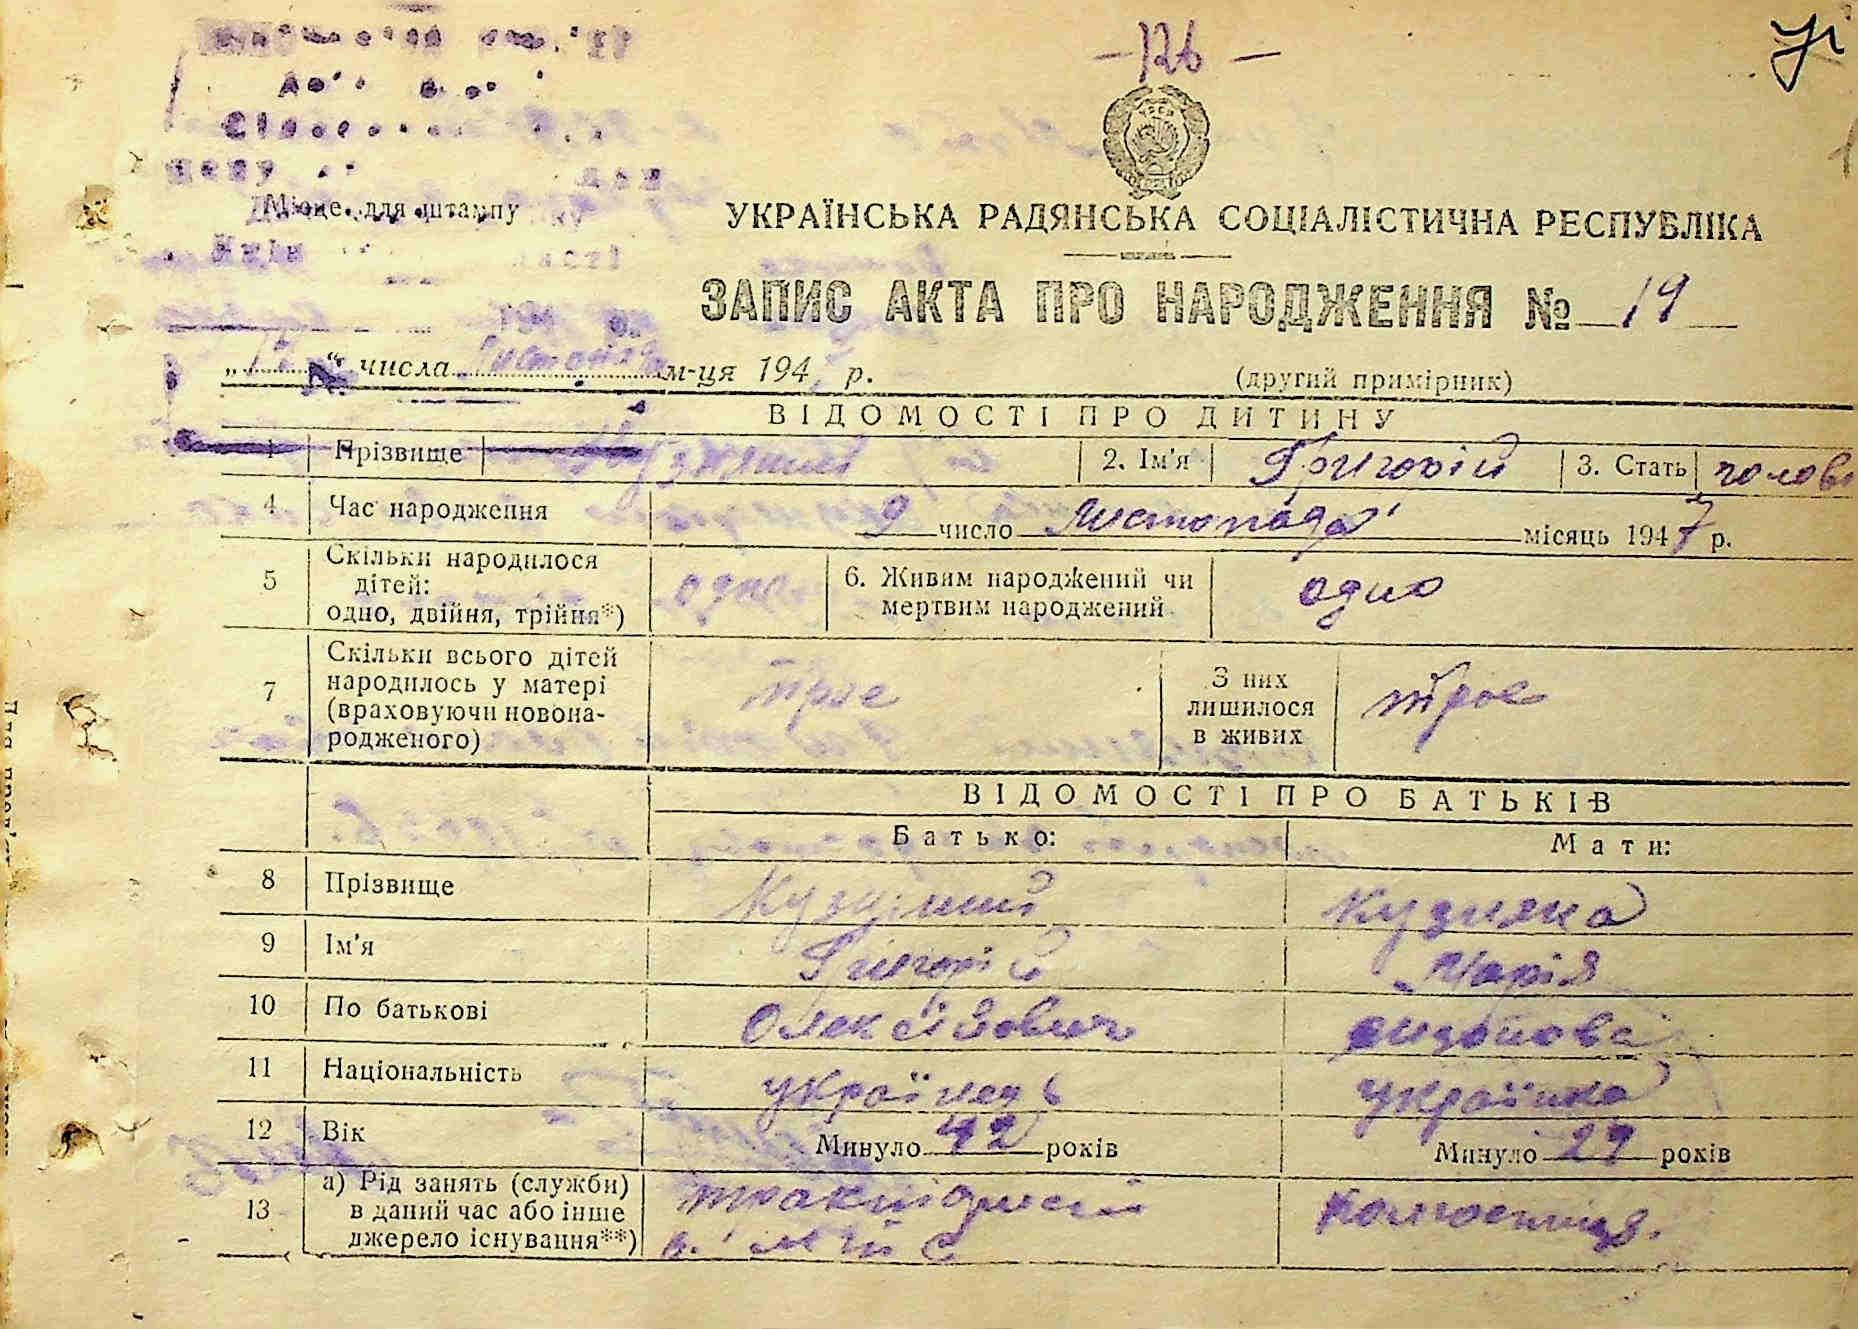 — 126 —
Місце для штампу
УКРАЇНСЬКА РАДЯНСЬКА СОЦІАЛІСТИЧНА РЕСПУБЛІКА
ЗАПИС АКТА ПРО НАРОДЖЕННЯ № 19
„ “ числа м-ця 194 р.
(другий примірник)
ВІДОМОСТІ ПРО ДИТИНУ
1 Прізвище 2. Ім'я Григорій 3. Стать
4 Час народження 9 число листопада місяць 1947 р.
5 Скільки народилося дітей: одно, двійня, трійня*) одно 6. Живим народжений чи мертвим народжений одно
7 Скільки всього дітей народилось у матері (враховуючи новонародженого) троє З них лишилося в живих троє
ВІДОМОСТІ ПРО БАТЬКІВ
Батько: Мати:
8 Прізвище
9 Ім'я Григорій Марія
10 По батькові Олексійович
11 Національність українець українка
12 Вік Минуло 42 років Минуло 29 років
13 а) Рід занять (служби) в даний час або інше джерело існування**) МТС колгоспниця.